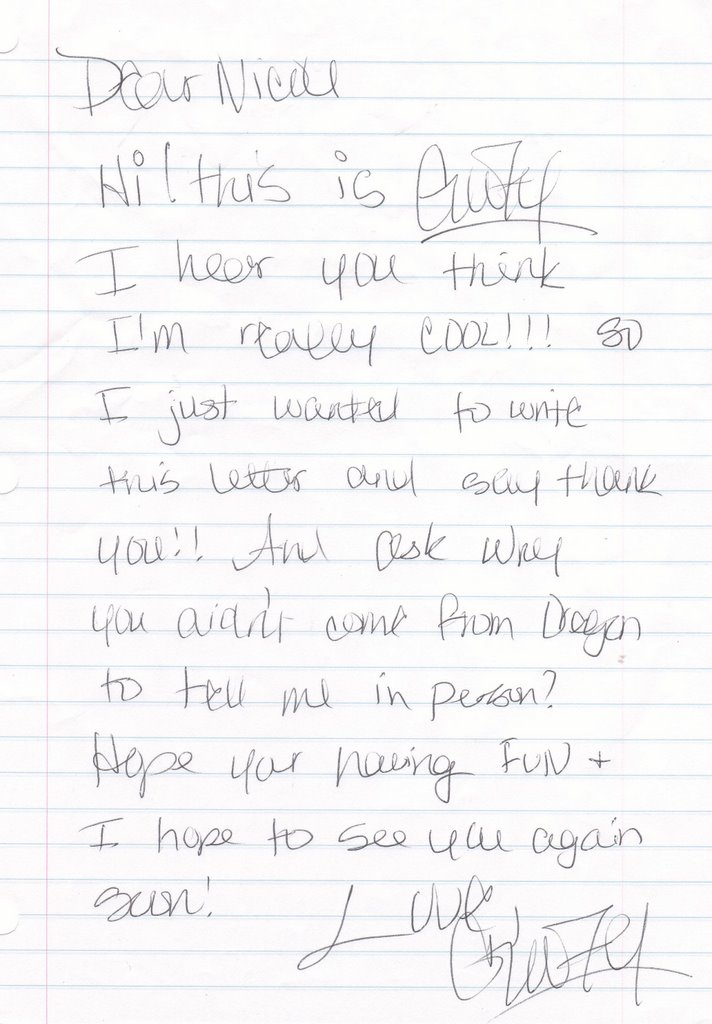 Dear Nicole
Hi! this is
I hear you think
I'm really COOL!!! so
I just wanted to write
this letter and say thank
you!! And ask why
you didn't come from Oregon
to tell me in person?
Hope your having FUN +
I hope to see you again
soon!
Love